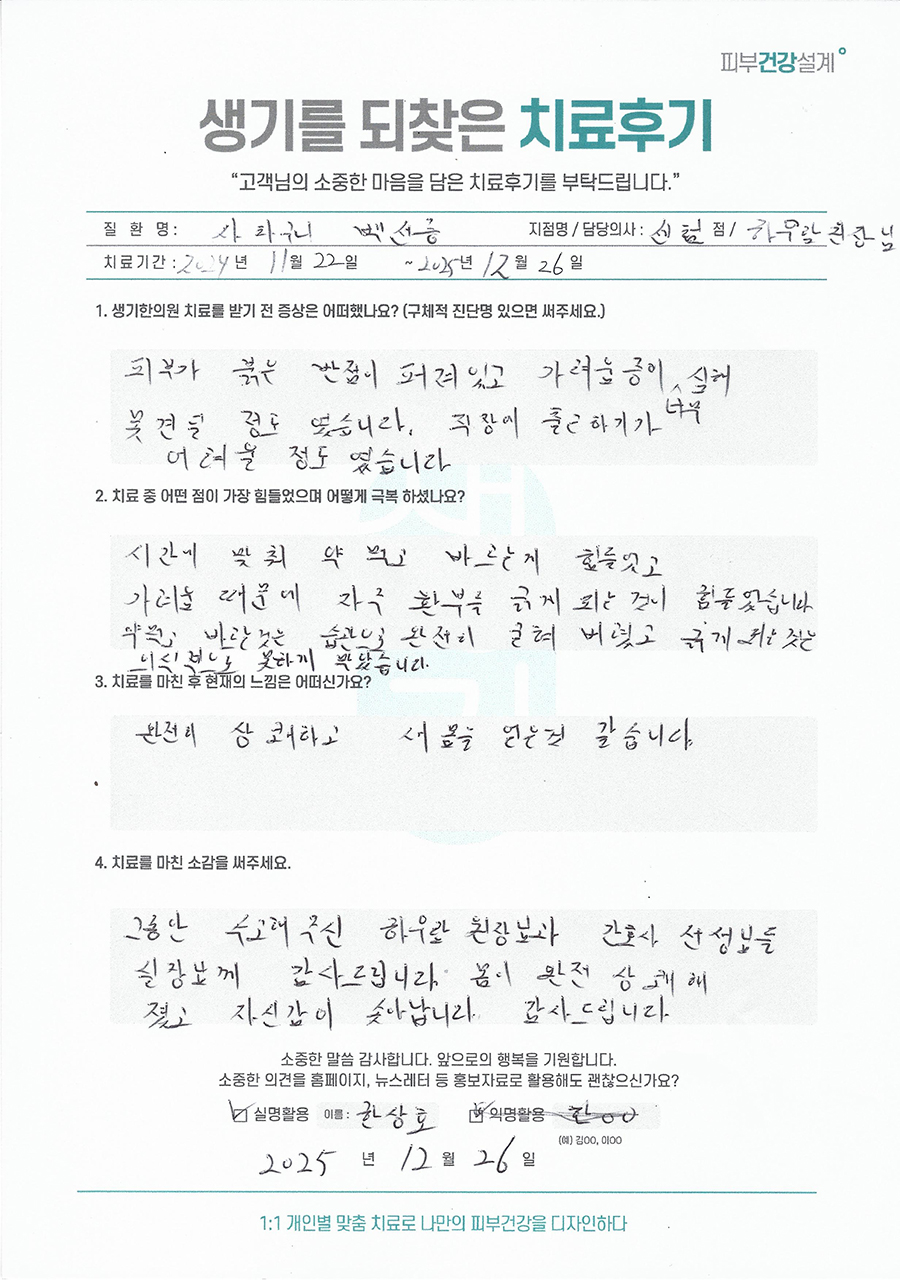 피부건강설계
생기를 되찾은 치료후기
“고객님의 소중한 마음을 담은 치료후기를 부탁드립니다.”
질 환 명 : 사타구니 백선증 지점명 / 담당의사 : 점 / 하우람 원장님
치료기간 : 2024년 11월 22일 ~2025년 12월 26일
1. 생기한의원 치료를 받기 전 증상은 어떠했나요? (구체적 진단명 있으면 써주세요.)
피부가 붉은 반점이 퍼져있고 가려움증이 너무 심해
못견딜 정도 였습니다. 직장에 출근하기가
어려울 정도 였습니다
2. 치료 중 어떤 점이 가장 힘들었으며 어떻게 극복 하셨나요?
시간에 맞춰 약 먹고 바르는게 힘들었고
가려움 때문에 자주 환부를 긁게 되는 것이 힘들었습니다
약먹고 바르는것은 습관으로 완전히 굳혀 버렸고 긁게 되는 것은
의식적으로 못하게 막았습니다.
3. 치료를 마친 후 현재의 느낌은 어떠신가요?
완전히 상쾌하고 새 몸을 얻은것 같습니다.
4. 치료를 마친 소감을 써주세요.
그동안 수고해 주신 하우람 원장님과 간호사 선생님들
실장님께 감사드립니다. 몸이 완전 상쾌해
졌고 자신감이 솟아납니다. 감사드립니다.
소중한 말씀 감사합니다. 앞으로의 행복을 기원합니다.
소중한 의견을 홈페이지, 뉴스레터 등 홍보자료로 활용해도 괜찮으신가요?
실명활용 이름 : 한상호 익명활용 한OO
(예) 김OO, 이OO
2025 년 12 월 26 일
1:1 개인별 맞춤 치료로 나만의 피부건강을 디자인하다